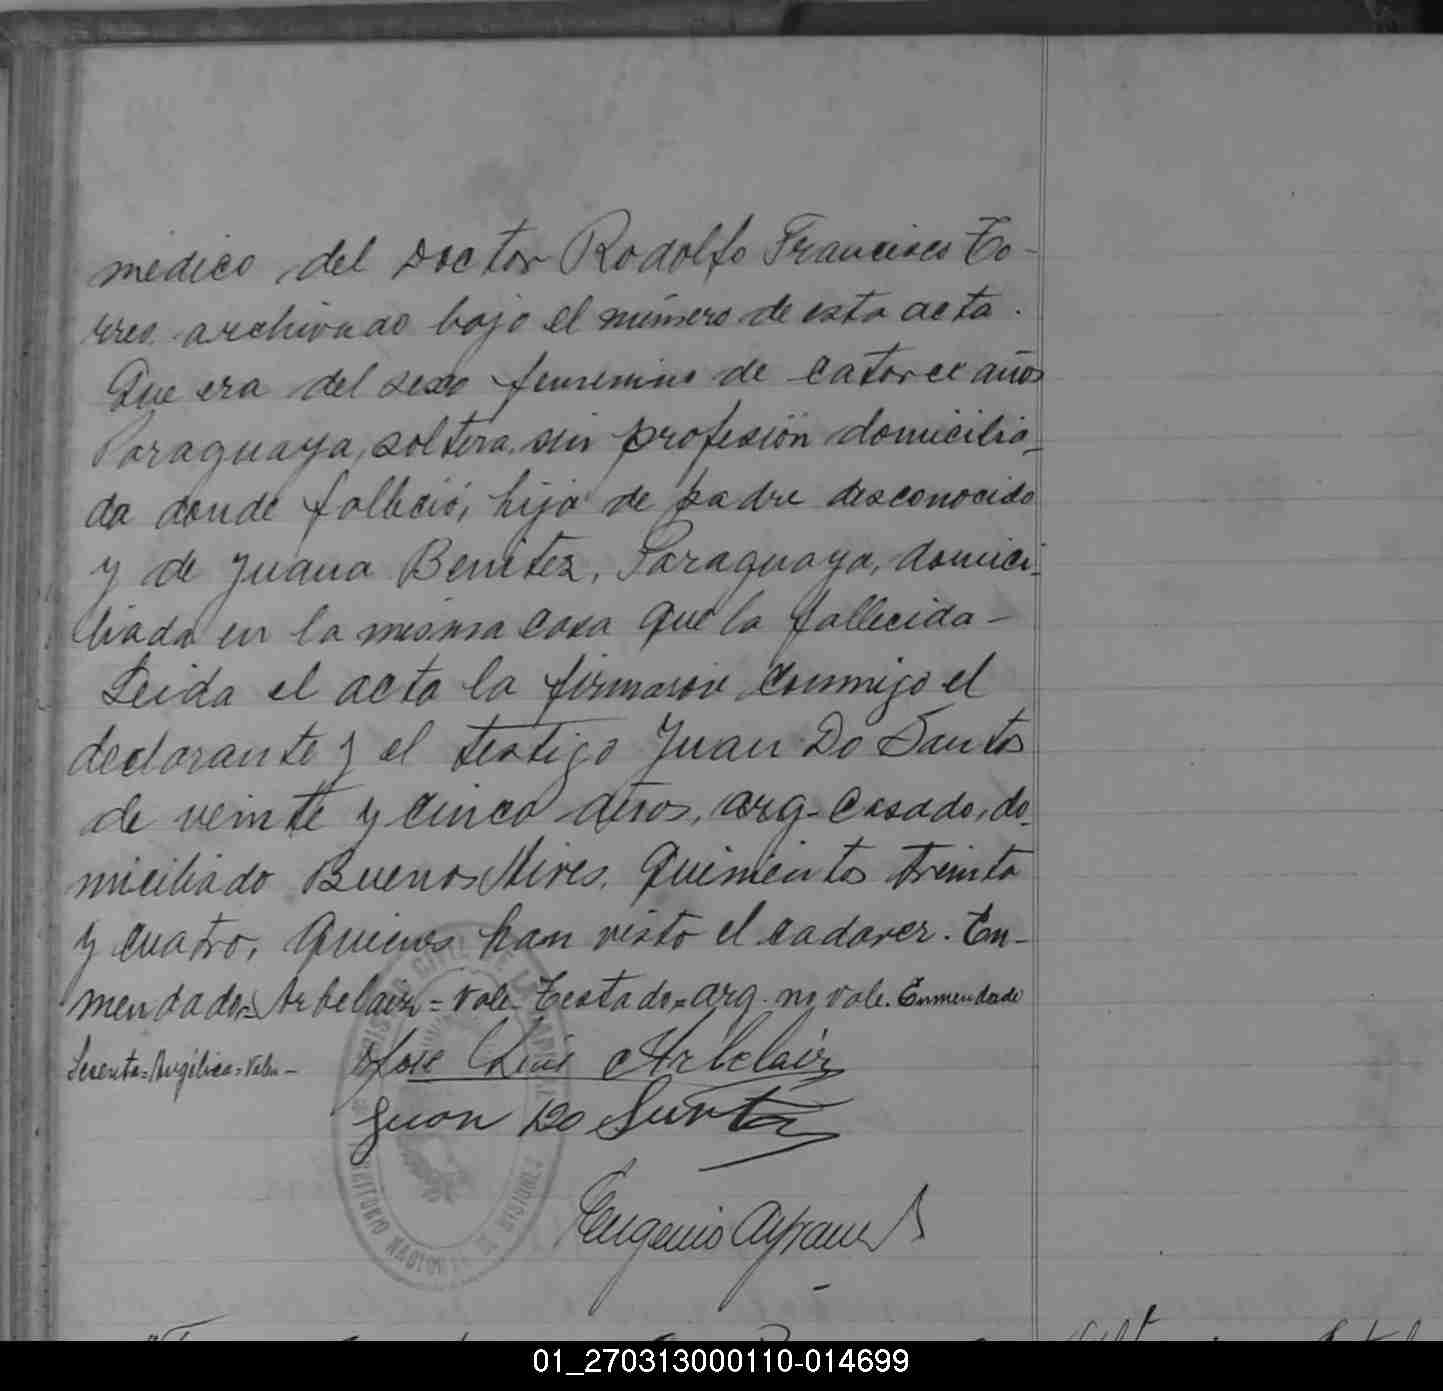 medico del Doctor Rodolfo Francisco To-
rres archivado bajo el número de esta acta.
Que era del sexo femenino de catorce años
Paraguaya, soltera, sin profesión domicilia-
da donde falleció, hija de padre desconocido
y de Juana Benitez, Paraguaya, domici-
liada en la misma casa que la fallecida-
Leida el acta la firmaron conmigo el
declarante y el testigo Juan Do Santos
de veinte y cinco años, arg. casado, do-
miciliado Buenos Aires. Quinientos treinta
y cuatro, Quienes han visto el cadaver. En-
mendado= Arbelaiz= Vale- Testado=arg. no vale. Enmendado
Sesenta=Angélica=Valen-
Jose Luis Arbelaiz
Juan Do Santos
Eugenio
TERRITORIO NACIONAL DE MISIONES
01_270313000110-014699